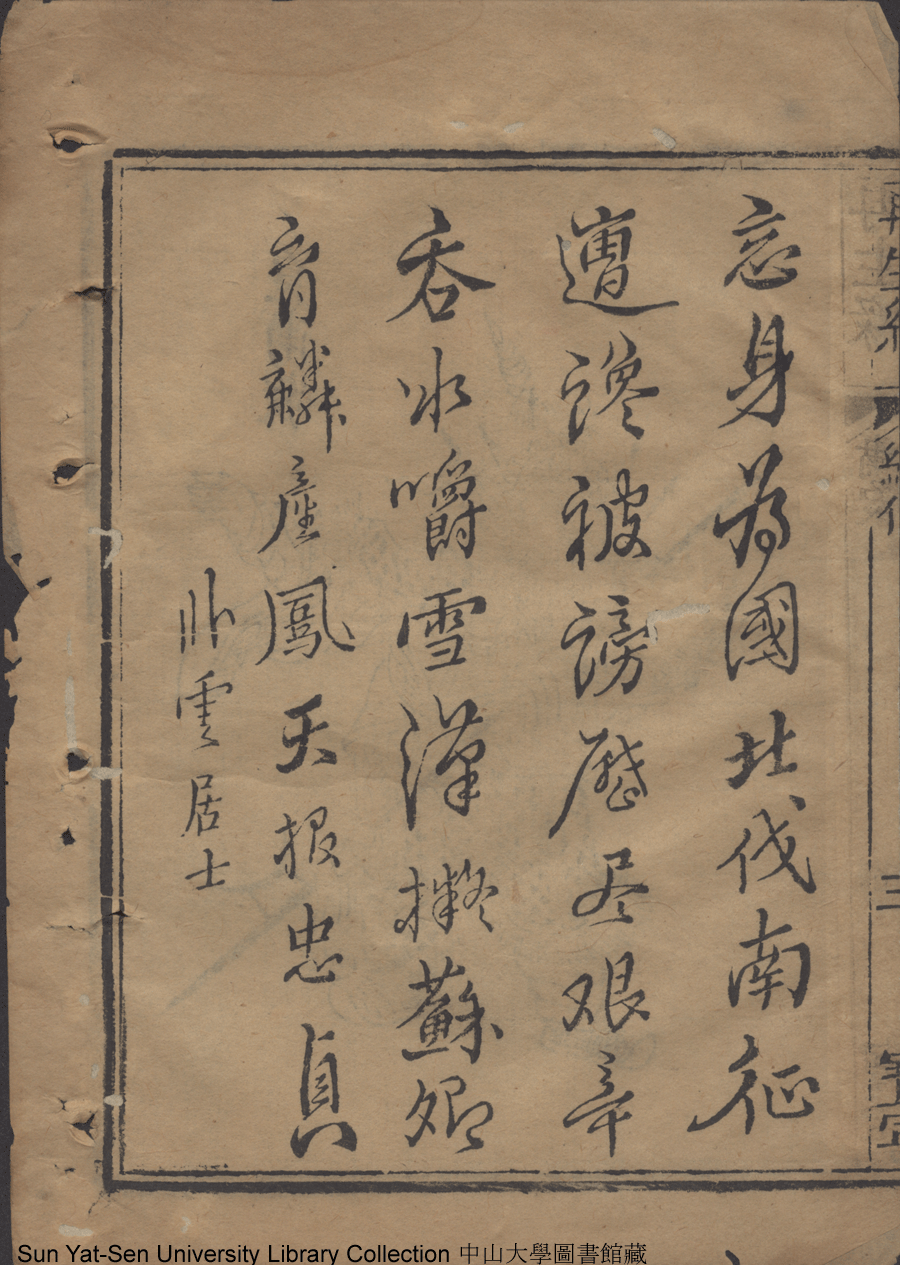 三
忘身為國北伐南征
遭讒被謗歷尽艰辛
吞冰嚼雪漢擬蘇卿
育麟產鳳天报忠貞
卧雲居士
Sun Yat-Sen University Library Collection 中山大學圖書館藏